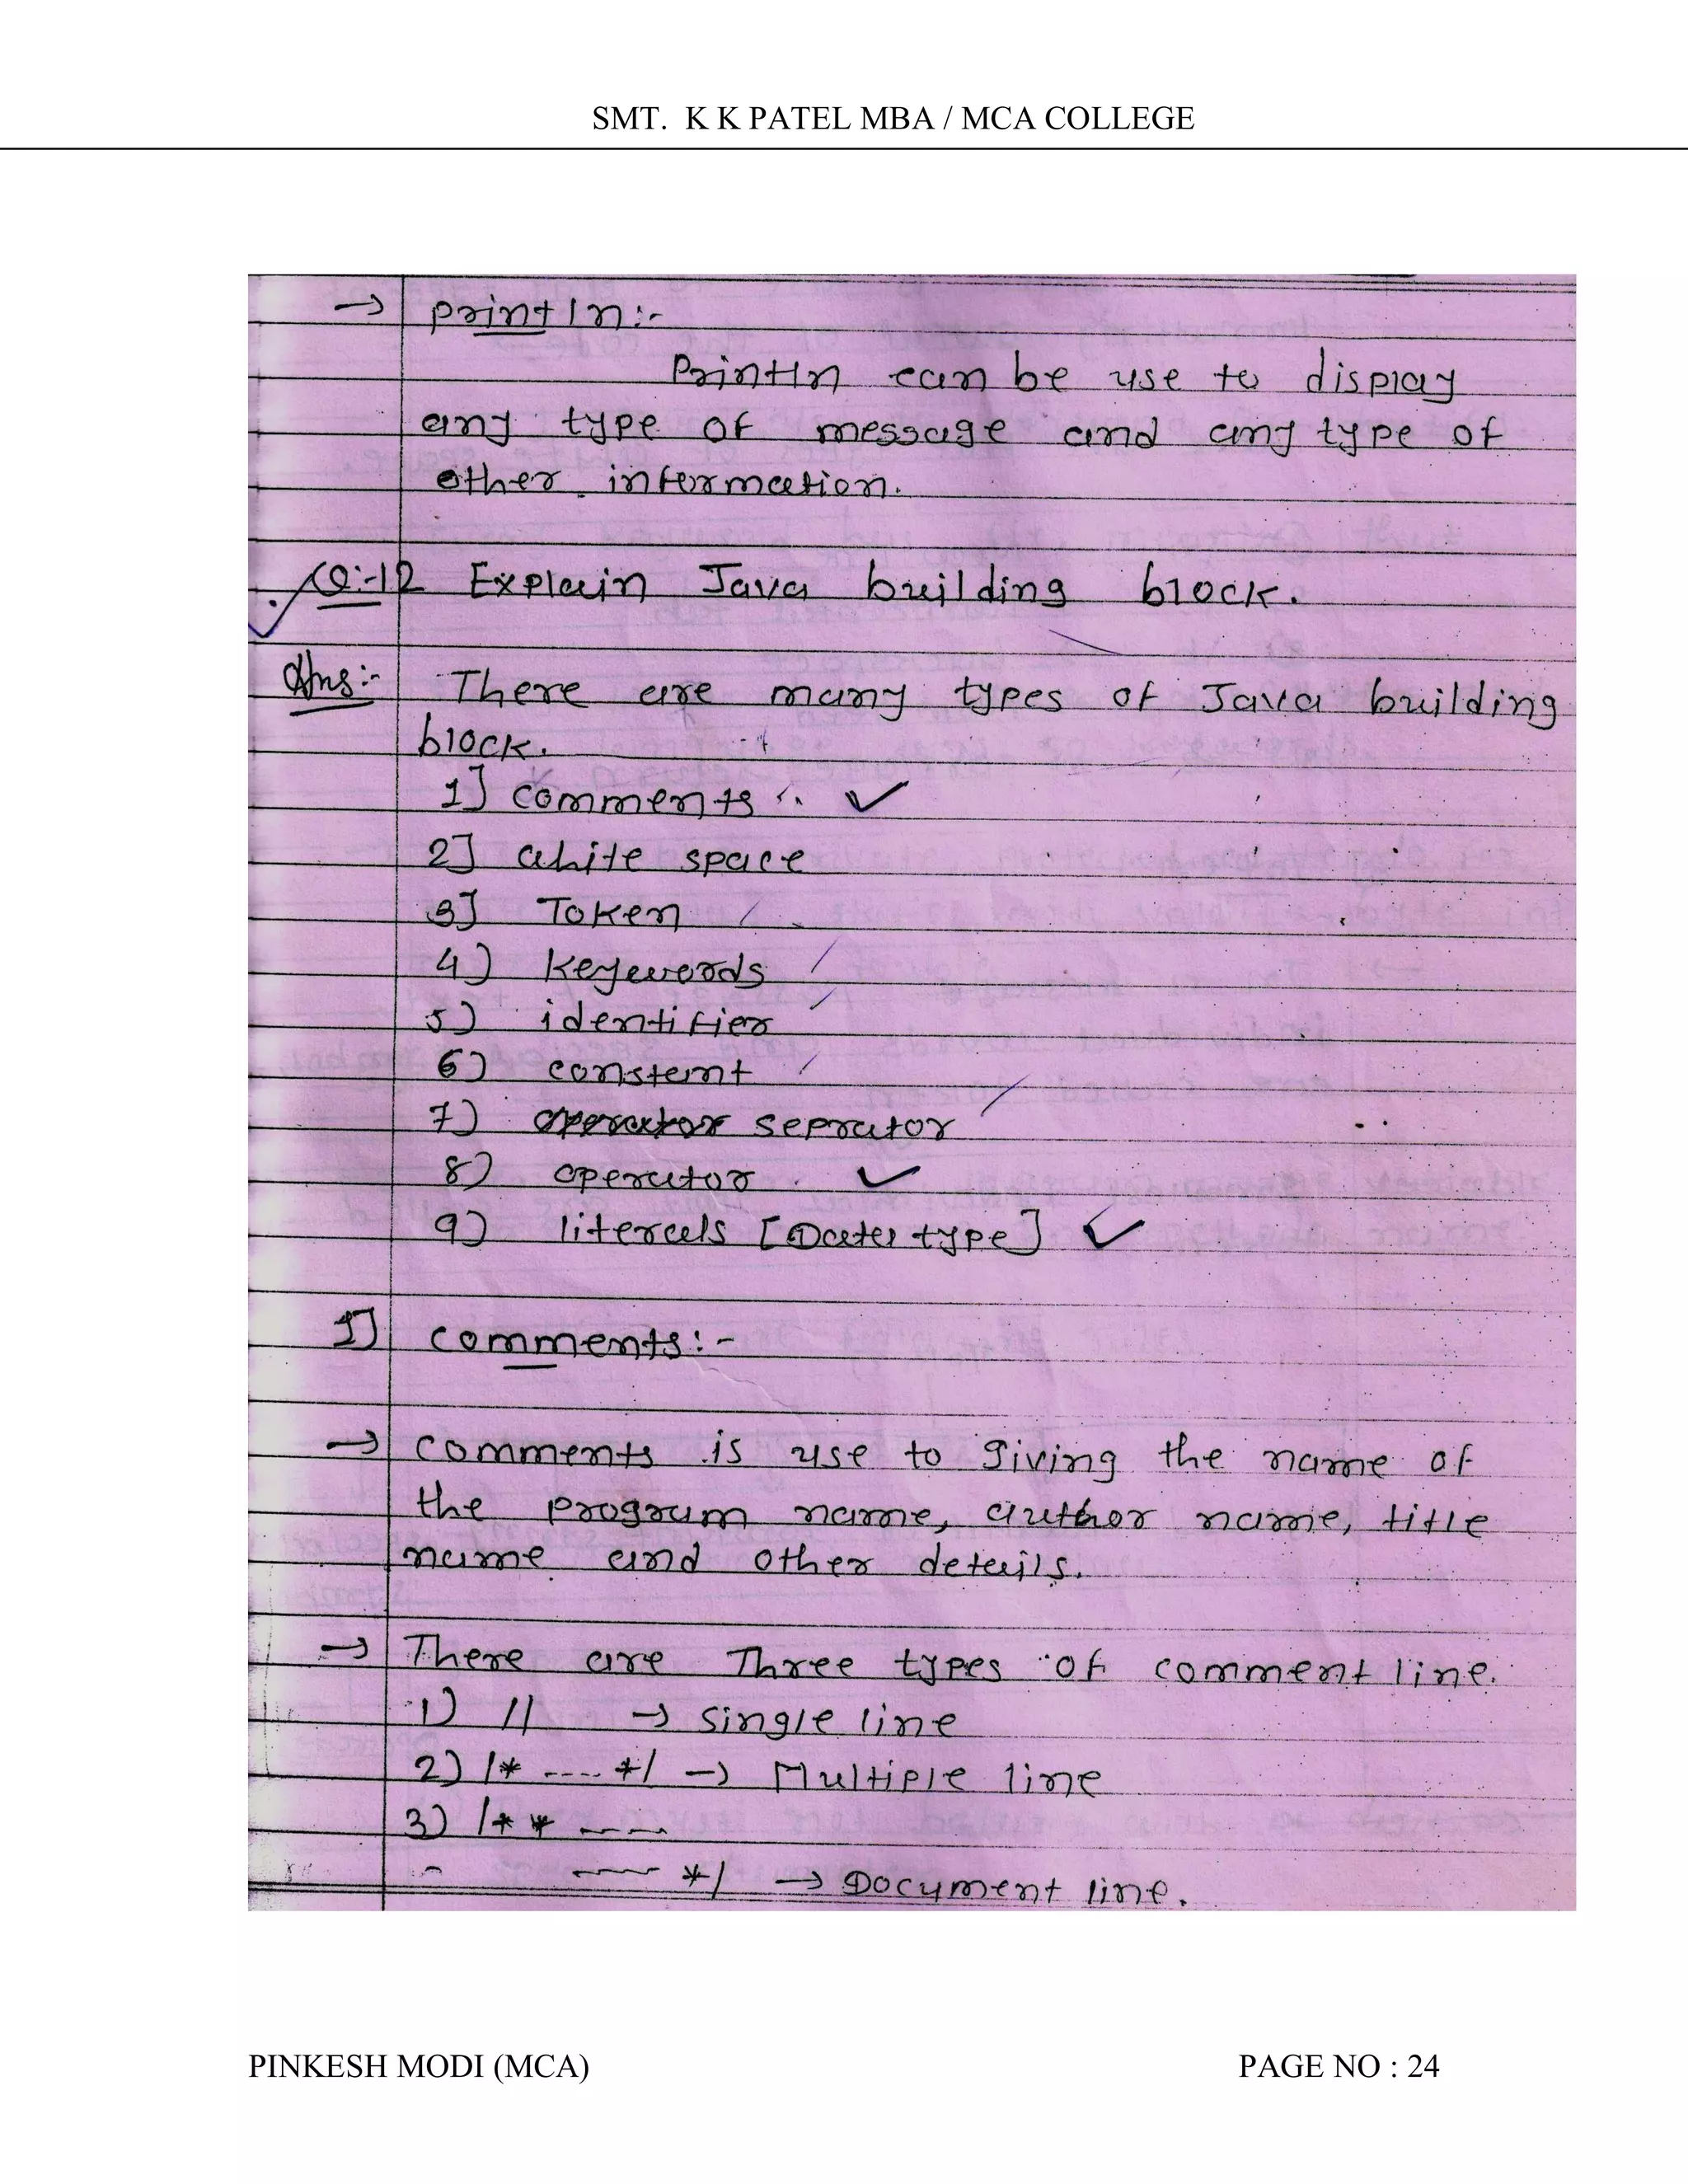 SMT. K K PATEL MBA / MCA COLLEGE
→ println:-
Println can be use to display
any type of message and any type of
other information.
Q:-12 Explain Java building block.
Ans:- There are many types of Java building
block.
1] comments
2] white space
3] Token
4) keywords
5) identifier
6) constant
7) operator seprator
8) operator
9) literals [Data type]
1] comments:-
→ comments is use to giving the name of
the program name, author name, title
name and other details.
→ There are Three types of comment line.
1) // → single line
2) /* ---- */ → Multiple line
3) /** ---
---- */ → Document line.
PINKESH MODI (MCA) PAGE NO : 24